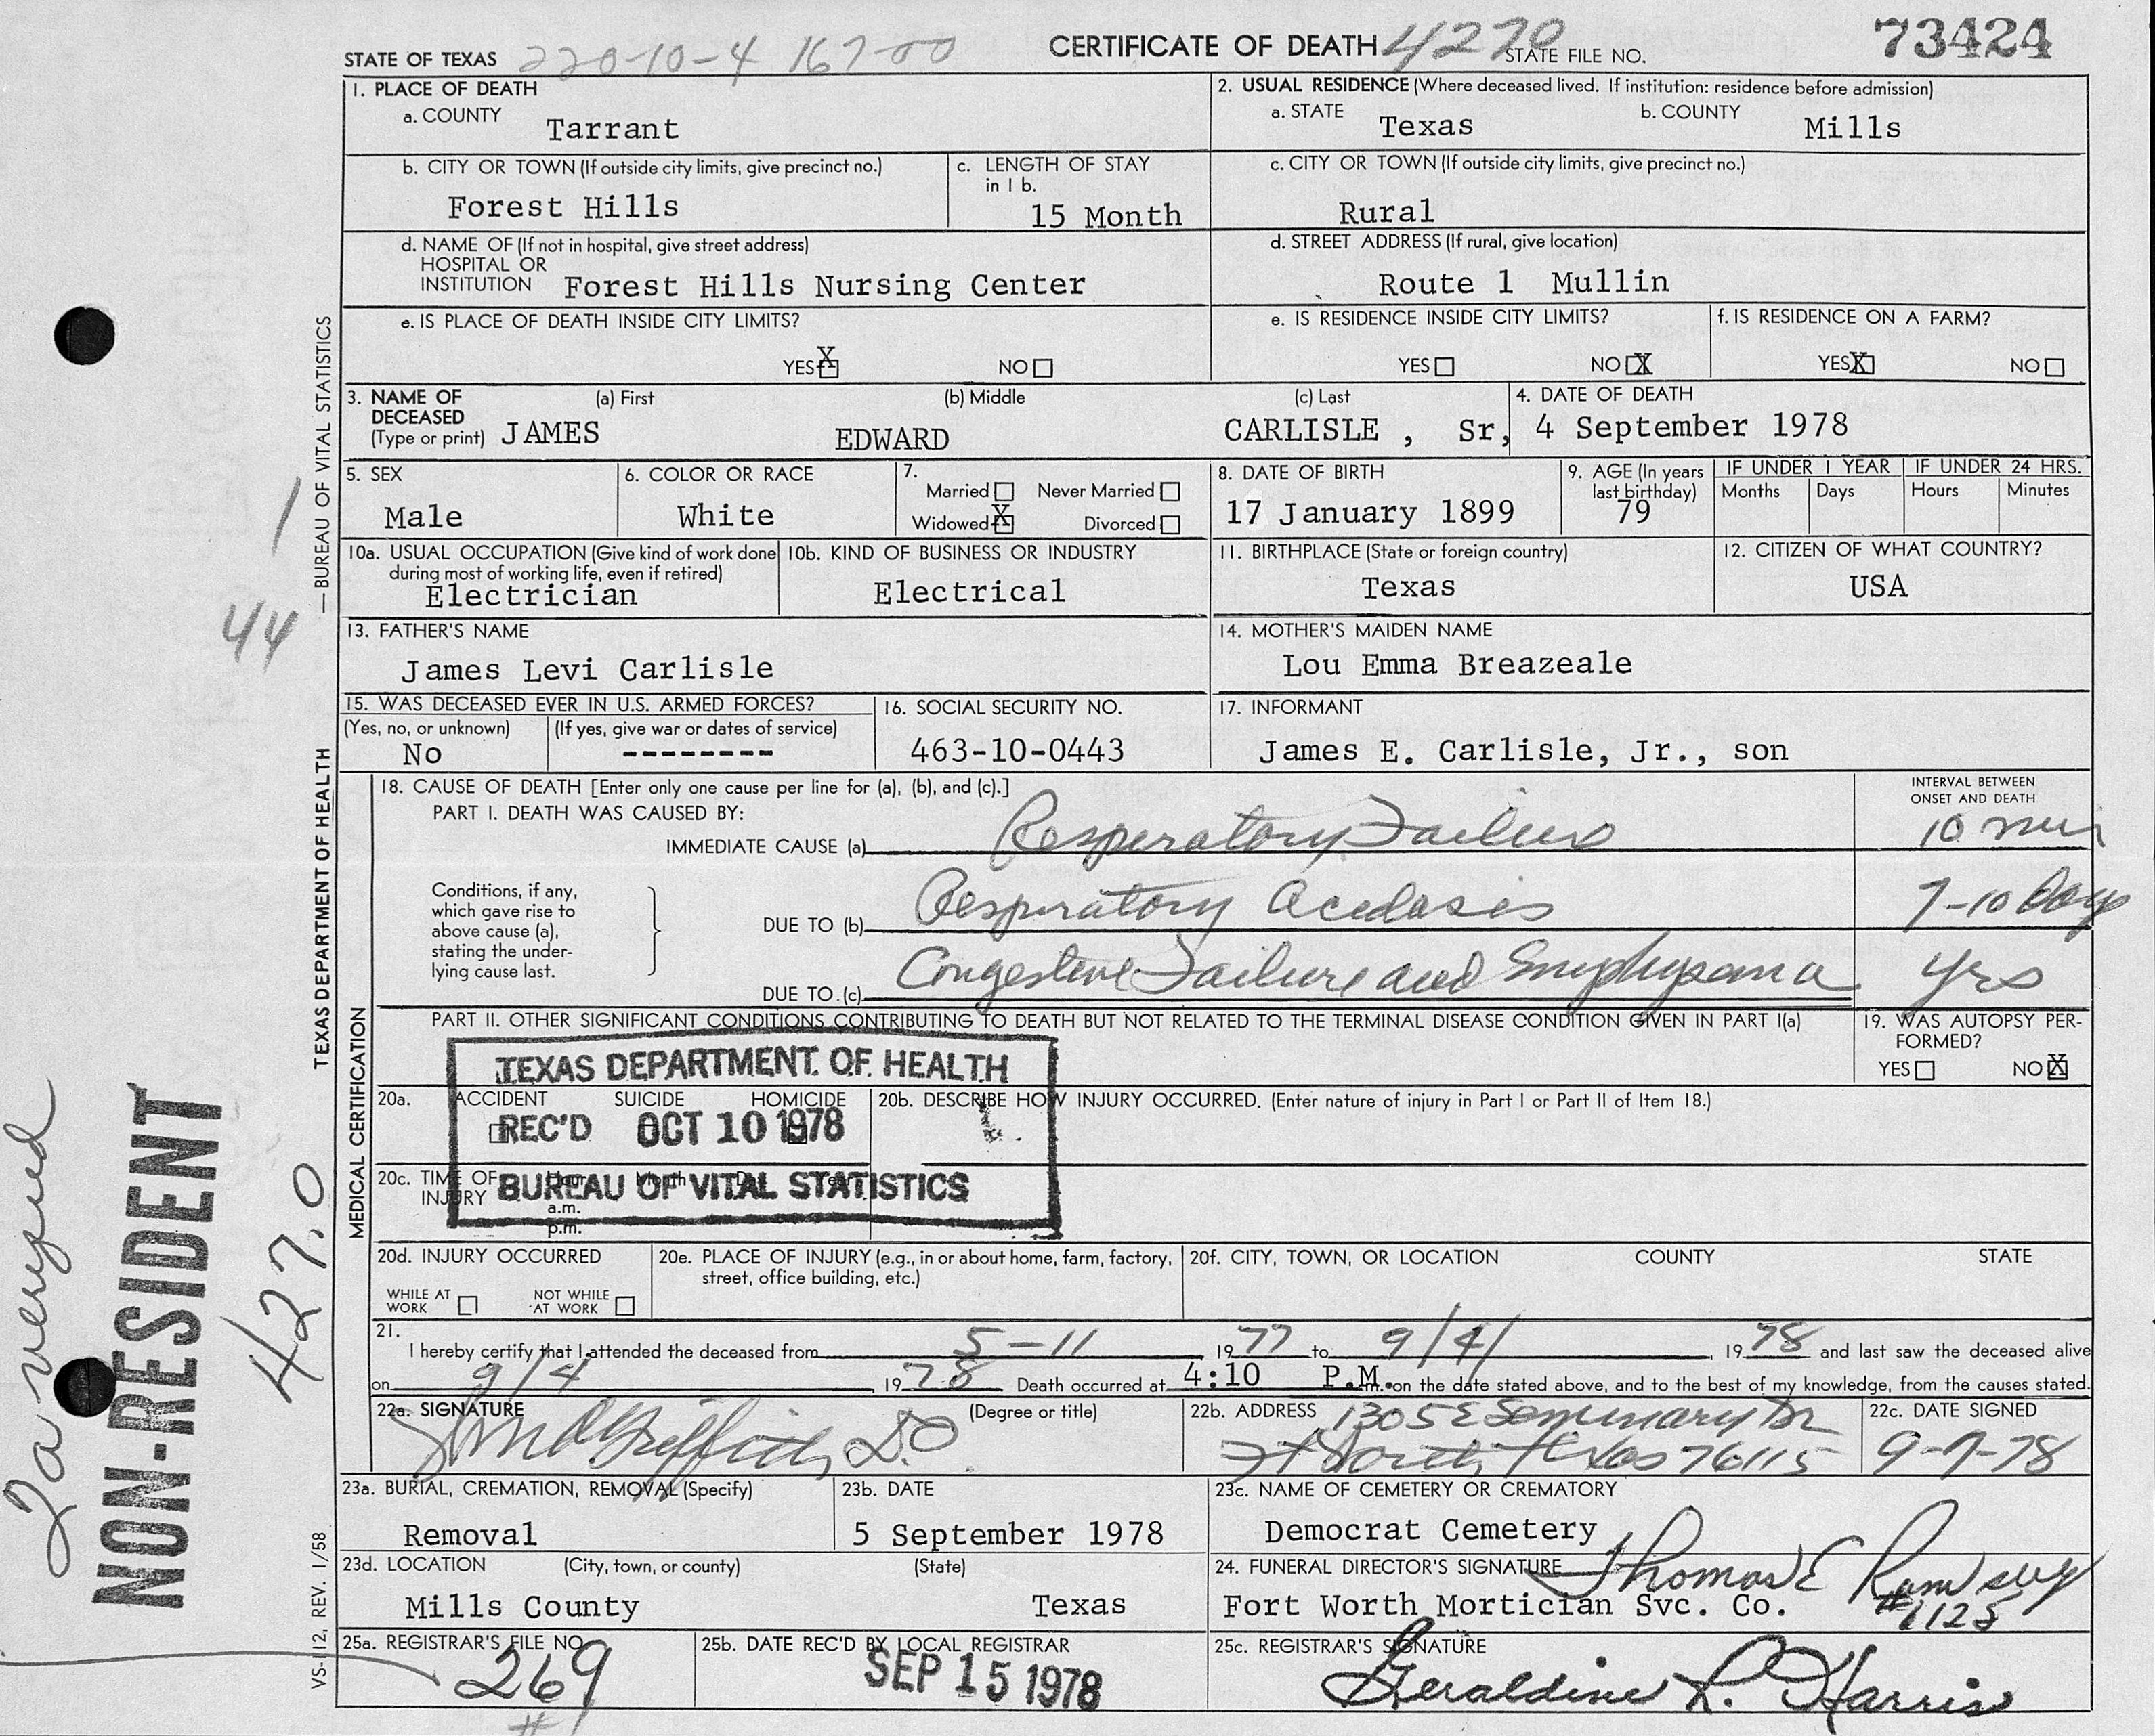 STATE OF TEXAS 220-10-4 167-00 CERTIFICATE OF DEATH 4270 STATE FILE NO. 73424
1. PLACE OF DEATH
a. COUNTY Tarrant
2. USUAL RESIDENCE (Where deceased lived. If institution: residence before admission)
a. STATE Texas b. COUNTY Mills
b. CITY OR TOWN (If outside city limits, give precinct no.)
Forest Hills
c. LENGTH OF STAY
in 1 b.
15 Month
c. CITY OR TOWN (If outside city limits, give precinct no.)
Rural
d. NAME OF (If not in hospital, give street address)
HOSPITAL OR
INSTITUTION Forest Hills Nursing Center
d. STREET ADDRESS (If rural, give location)
Route 1 Mullin
e. IS PLACE OF DEATH INSIDE CITY LIMITS?
YES X NO
e. IS RESIDENCE INSIDE CITY LIMITS?
YES NO X
f. IS RESIDENCE ON A FARM?
YES X NO
3. NAME OF (a) First (b) Middle (c) Last
DECEASED
(Type or print) JAMES EDWARD CARLISLE , Sr,
4. DATE OF DEATH
4 September 1978
5. SEX
Male
6. COLOR OR RACE
White
7.
Married Never Married
Widowed X Divorced
8. DATE OF BIRTH
17 January 1899
9. AGE (In years
last birthday)
79
IF UNDER 1 YEAR IF UNDER 24 HRS.
Months Days Hours Minutes
10a. USUAL OCCUPATION (Give kind of work done
during most of working life, even if retired)
Electrician
10b. KIND OF BUSINESS OR INDUSTRY
Electrical
11. BIRTHPLACE (State or foreign country)
Texas
12. CITIZEN OF WHAT COUNTRY?
USA
13. FATHER'S NAME
James Levi Carlisle
14. MOTHER'S MAIDEN NAME
Lou Emma Breazeale
15. WAS DECEASED EVER IN U.S. ARMED FORCES?
(Yes, no, or unknown) (If yes, give war or dates of service)
No --------
16. SOCIAL SECURITY NO.
463-10-0443
17. INFORMANT
James E. Carlisle, Jr., son
18. CAUSE OF DEATH [Enter only one cause per line for (a), (b), and (c).]
INTERVAL BETWEEN
ONSET AND DEATH
PART I. DEATH WAS CAUSED BY:
IMMEDIATE CAUSE (a) Respiratory Failure 10 min
Conditions, if any,
which gave rise to
above cause (a),
stating the under-
lying cause last.
DUE TO (b) Respiratory Acedosis 7-10 Days
DUE TO (c) Congestive Failure and Emphysema yrs
PART II. OTHER SIGNIFICANT CONDITIONS CONTRIBUTING TO DEATH BUT NOT RELATED TO THE TERMINAL DISEASE CONDITION GIVEN IN PART I(a)
19. WAS AUTOPSY PER-
FORMED?
YES NO X
TEXAS DEPARTMENT OF HEALTH
REC'D OCT 10 1978
BUREAU OF VITAL STATISTICS
20a. ACCIDENT SUICIDE HOMICIDE
20b. DESCRIBE HOW INJURY OCCURRED. (Enter nature of injury in Part I or Part II of Item 18.)
20c. TIME OF Hour Month Day Year
INJURY
a.m.
p.m.
20d. INJURY OCCURRED
WHILE AT WORK NOT WHILE AT WORK
20e. PLACE OF INJURY (e.g., in or about home, farm, factory,
street, office building, etc.)
20f. CITY, TOWN, OR LOCATION COUNTY STATE
21.
I hereby certify that I attended the deceased from 5-11 1977 to 9/4/ , 1978 and last saw the deceased alive
on 9/4 , 1978 Death occurred at 4:10 P.M. m. on the date stated above, and to the best of my knowledge, from the causes stated.
22a. SIGNATURE (Degree or title)
Griffith, DO
22b. ADDRESS 1305 E Seminary Dr
Ft Worth, Texas 76115
22c. DATE SIGNED
9-7-78
23a. BURIAL, CREMATION, REMOVAL (Specify)
Removal
23b. DATE
5 September 1978
23c. NAME OF CEMETERY OR CREMATORY
Democrat Cemetery
23d. LOCATION (City, town, or county) (State)
Mills County Texas
24. FUNERAL DIRECTOR'S SIGNATURE Thomas E Ramsey
Fort Worth Mortician Svc. Co. #1125
25a. REGISTRAR'S FILE NO.
269
#
25b. DATE REC'D BY LOCAL REGISTRAR
SEP 15 1978
25c. REGISTRAR'S SIGNATURE
Geraldine L. Harris
TEXAS DEPARTMENT OF HEALTH — BUREAU OF VITAL STATISTICS
MEDICAL CERTIFICATION
VS-112, REV. 1/58
1
44
427.0
NON-RESIDENT
2a veryued